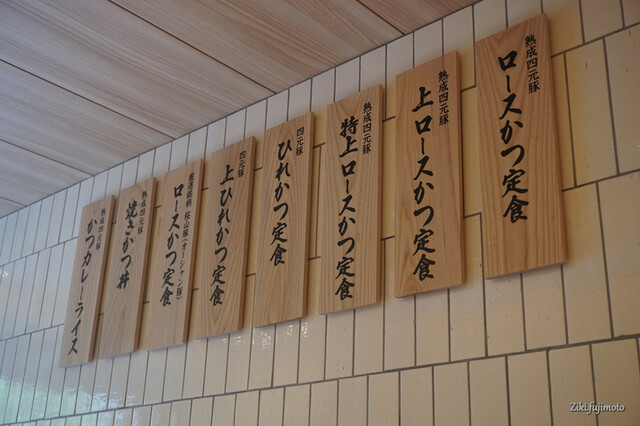 熟成四元豚
ロースかつ定食
熟成四元豚
上ロースかつ定食
熟成四元豚
特上ロースかつ定食
四元豚
ひれかつ定食
四元豚
上ひれかつ定食
厳選銘柄 桜山豚(オーシャン豚)
ロースかつ定食
熟成四元豚
焼きかつ丼
熟成四元豚
かつカレーライス
Ziki.fujimoto